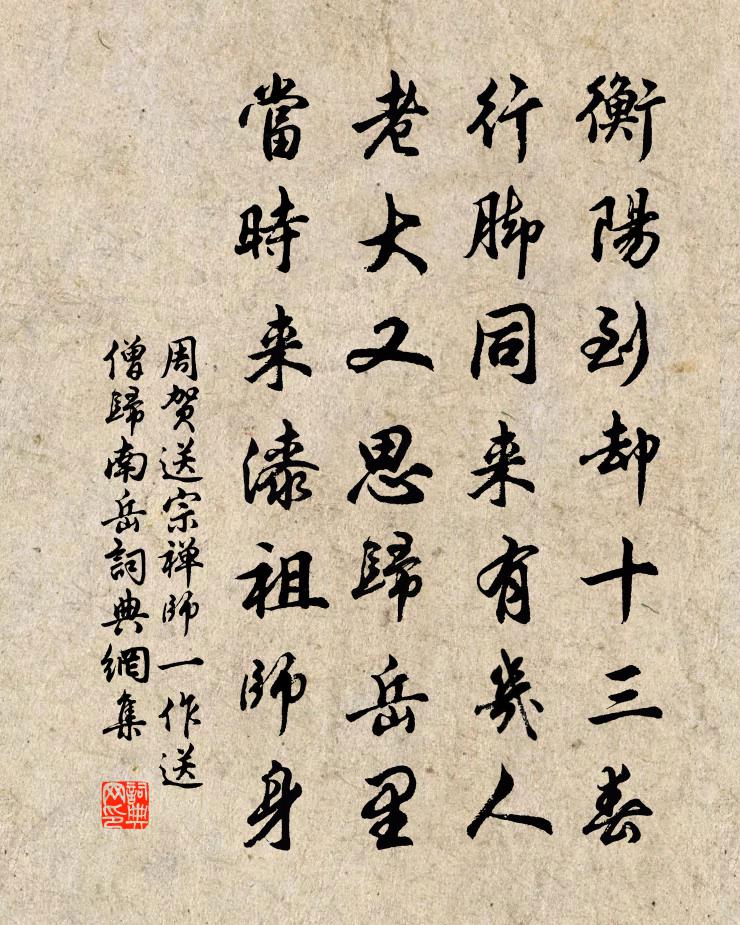 衡陽到却十三春
行脚同来有幾人
老大又思歸岳里
當時来漆祖師身
周贺送宗禅師一作送
僧歸南岳詞典網集
詞典网印